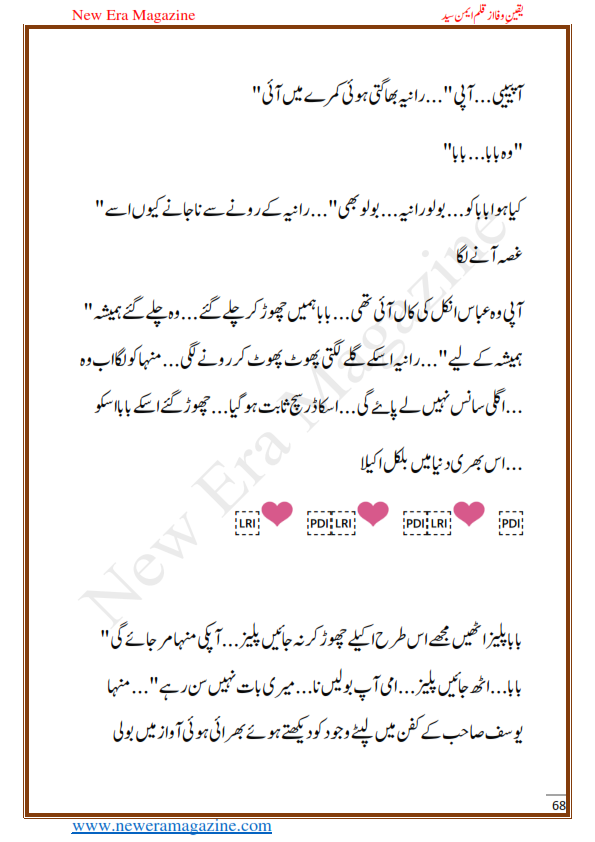 New Era Magazine
یقین وفا از قلم ایمن سید
آپیییی...آپی"...رانیہ بھاگتی ہوئی کمرے میں آئی"
"وہ بابا...بابا"
کیا ہوا بابا کو...بولو رانیہ...بولو بھی"...رانیہ کے رونے سے ناجانے کیوں اسے"
غصہ آنے لگا
آپی وہ عباس انکل کی کال آئی تھی...بابا ہمیں چھوڑ کر چلے گئے...وہ چلے گئے ہمیشہ"
ہمیشہ کے لیے"...رانیہ اسکے گلے لگتی پھوٹ پھوٹ کر رونے لگی...منہا کو لگا اب وہ
...اگلی سانس نہیں لے پائے گی...اسکا ڈر سچ ثابت ہو گیا...چھوڑ گئے اسکے بابا اسکو
...اس بھری دنیا میں بلکل اکیلا
LRI PDI LRI PDI LRI PDI
بابا پلیز اٹھیں مجھے اس طرح اکیلے چھوڑ کر نہ جائیں پلیز...آپکی منہا مر جائے گی"
بابا...اٹھ جائیں پلیز...امی آپ بولیں نا...میری بات نہیں سن رہے"...منہا
یوسف صاحب کے کفن میں لپٹے وجود کو دیکھتے ہوئے بھرائی ہوئی آواز میں بولی
New Era Magazine
68
www.neweramagazine.com